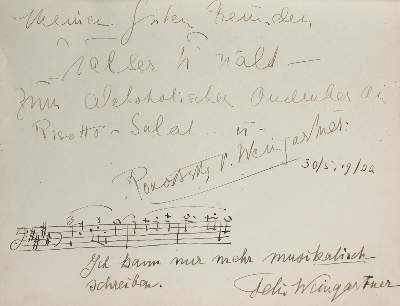 Meinen guten Freunden
zum alchoholischen Andenken an
Risotto-Salat
P. Weingartner
30/5.19/22
Ich kann nur mehr musikalisch
schreiben.
Felix Weingartner